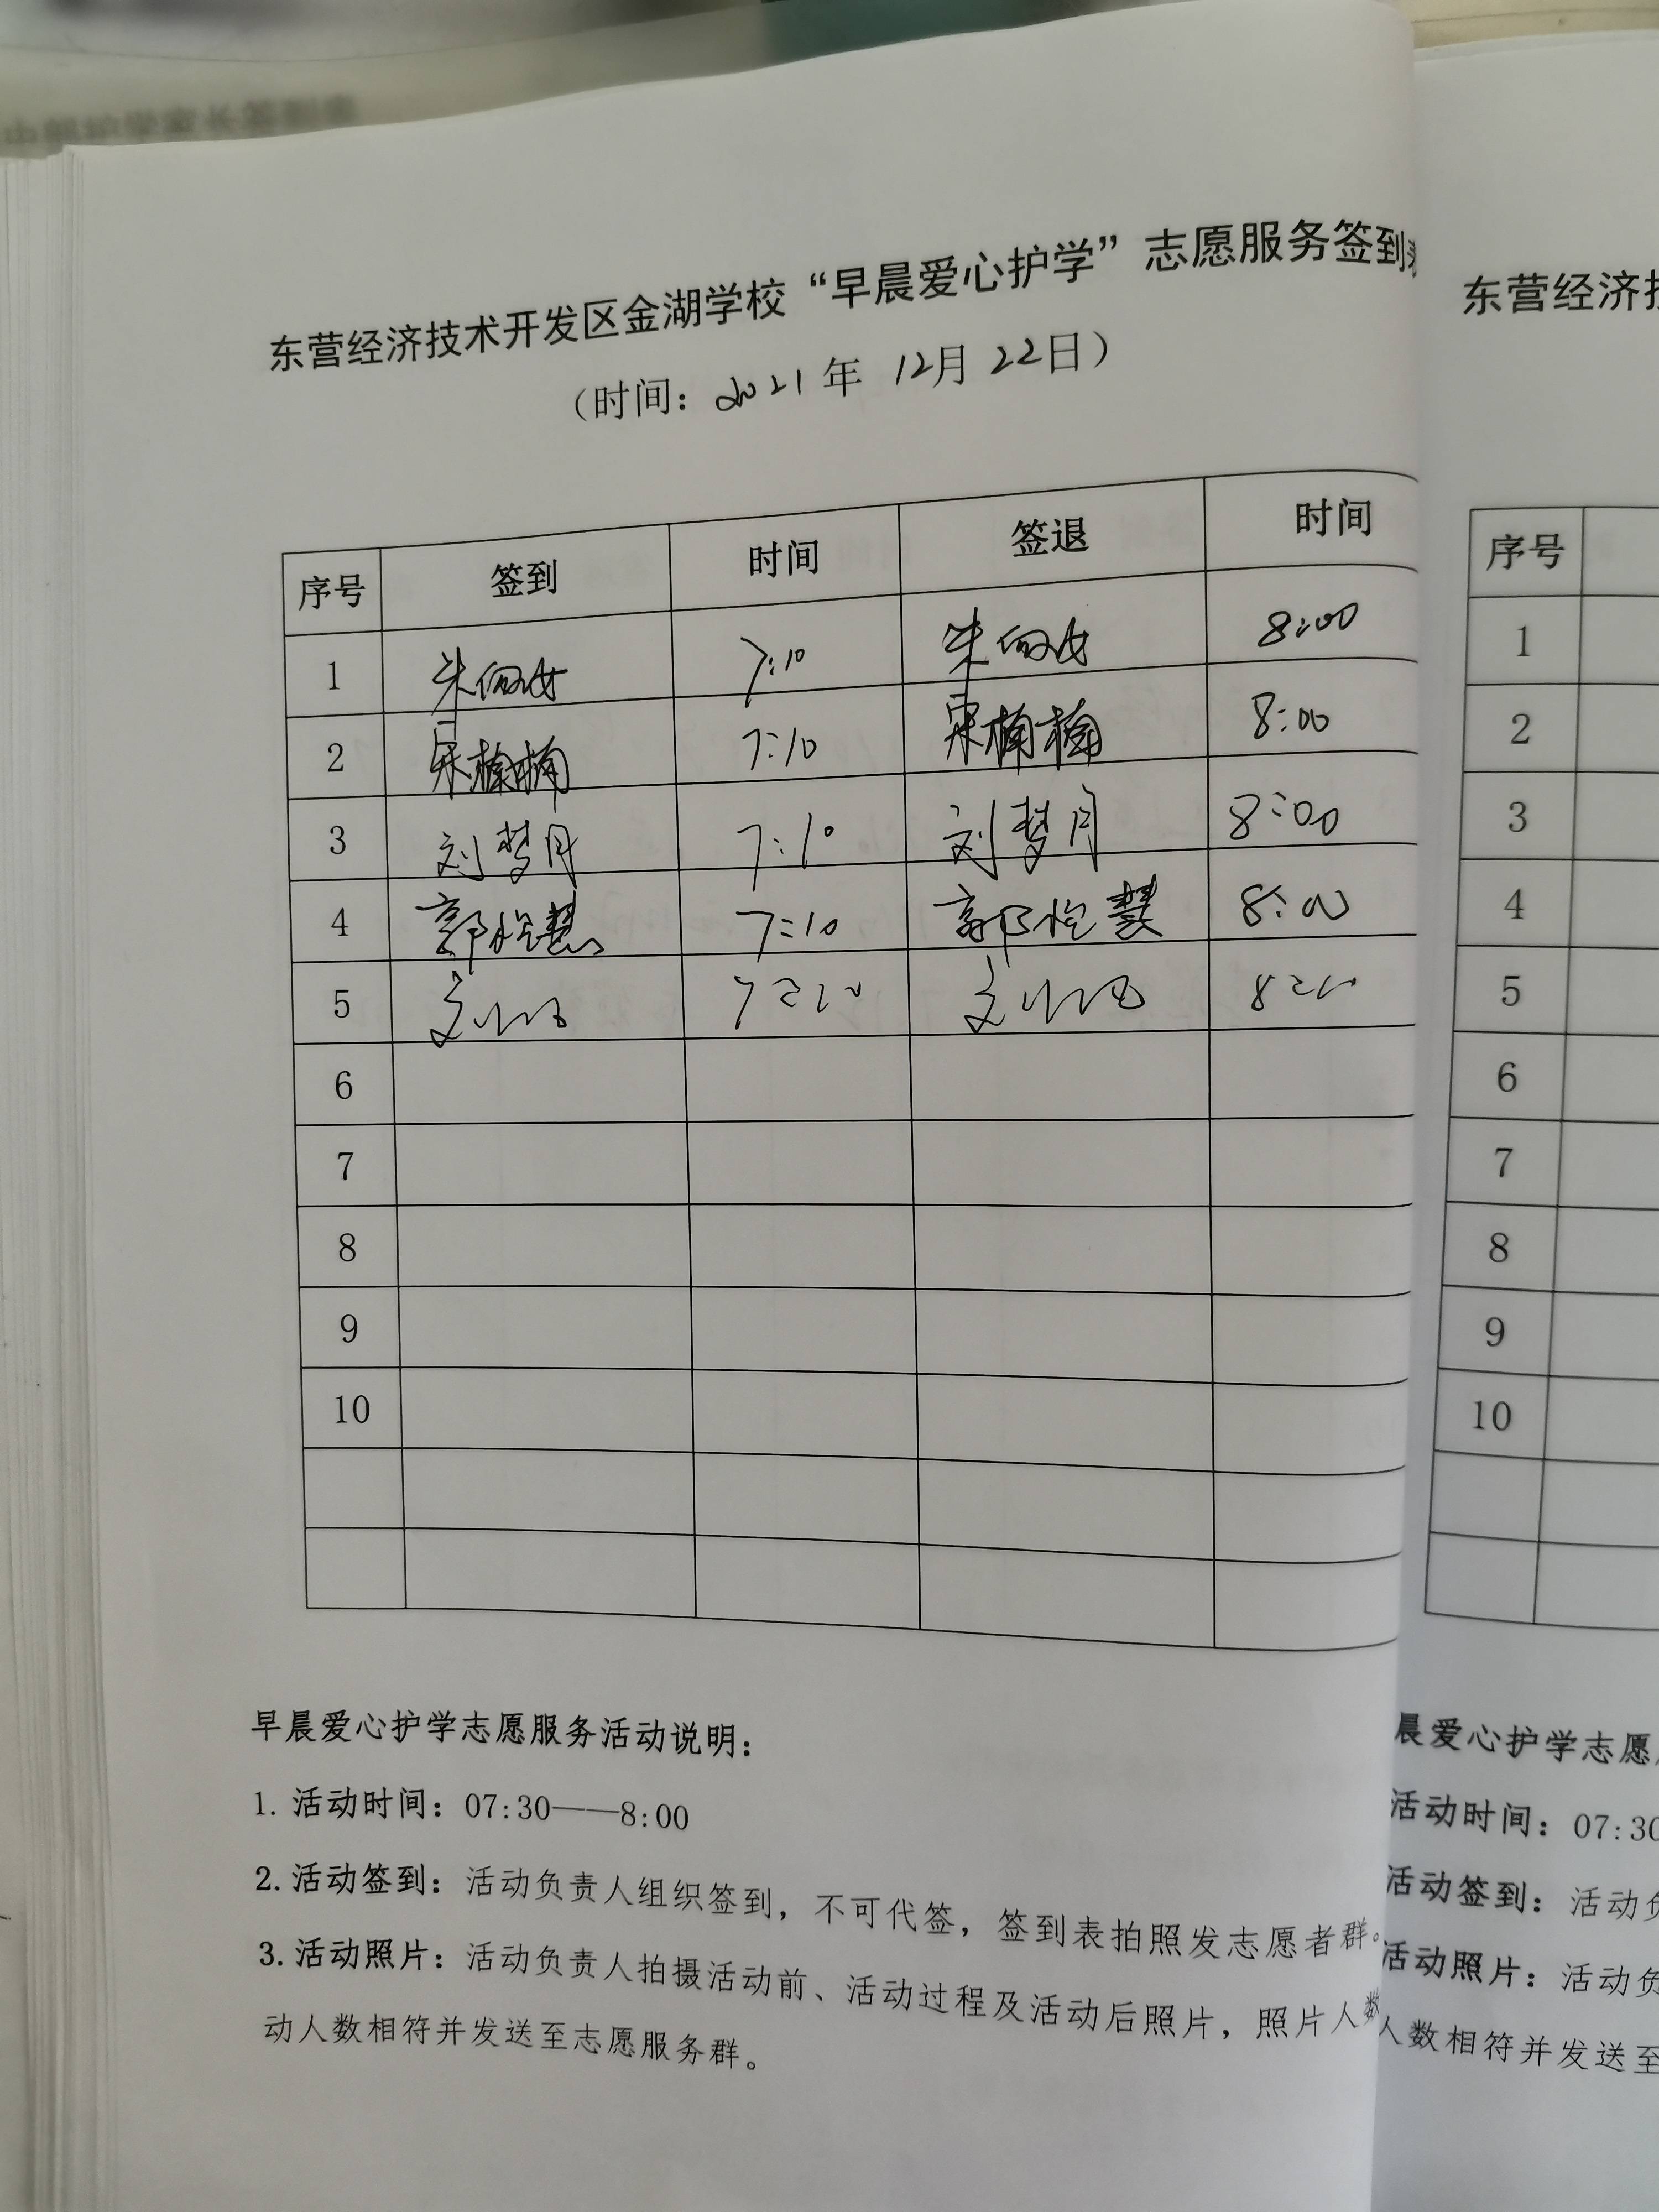 东营经济技术开发区金湖学校“早晨爱心护学”志愿服务签到表
（时间：2021年 12月 22日）
序号 签到 时间 签退 时间
1 朱 7:10 朱 8:00
2 楠楠 7:10 楠楠 8:00
3 刘梦月 7:10 刘梦月 8:00
4 郭怡慧 7:10 郭怡慧 8:00
5
6
7
8
9
10
早晨爱心护学志愿服务活动说明：
1. 活动时间：07:30——8:00
2. 活动签到：活动负责人组织签到，不可代签，签到表拍照发志愿者群。
3. 活动照片：活动负责人拍摄活动前、活动过程及活动后照片，照片人数
动人数相符并发送至志愿服务群。
东营经济技
序号
1
2
3
4
5
6
7
8
9
10
晨爱心护学志愿
活动时间：07:30
活动签到：活动负
活动照片：活动负
人数相符并发送至